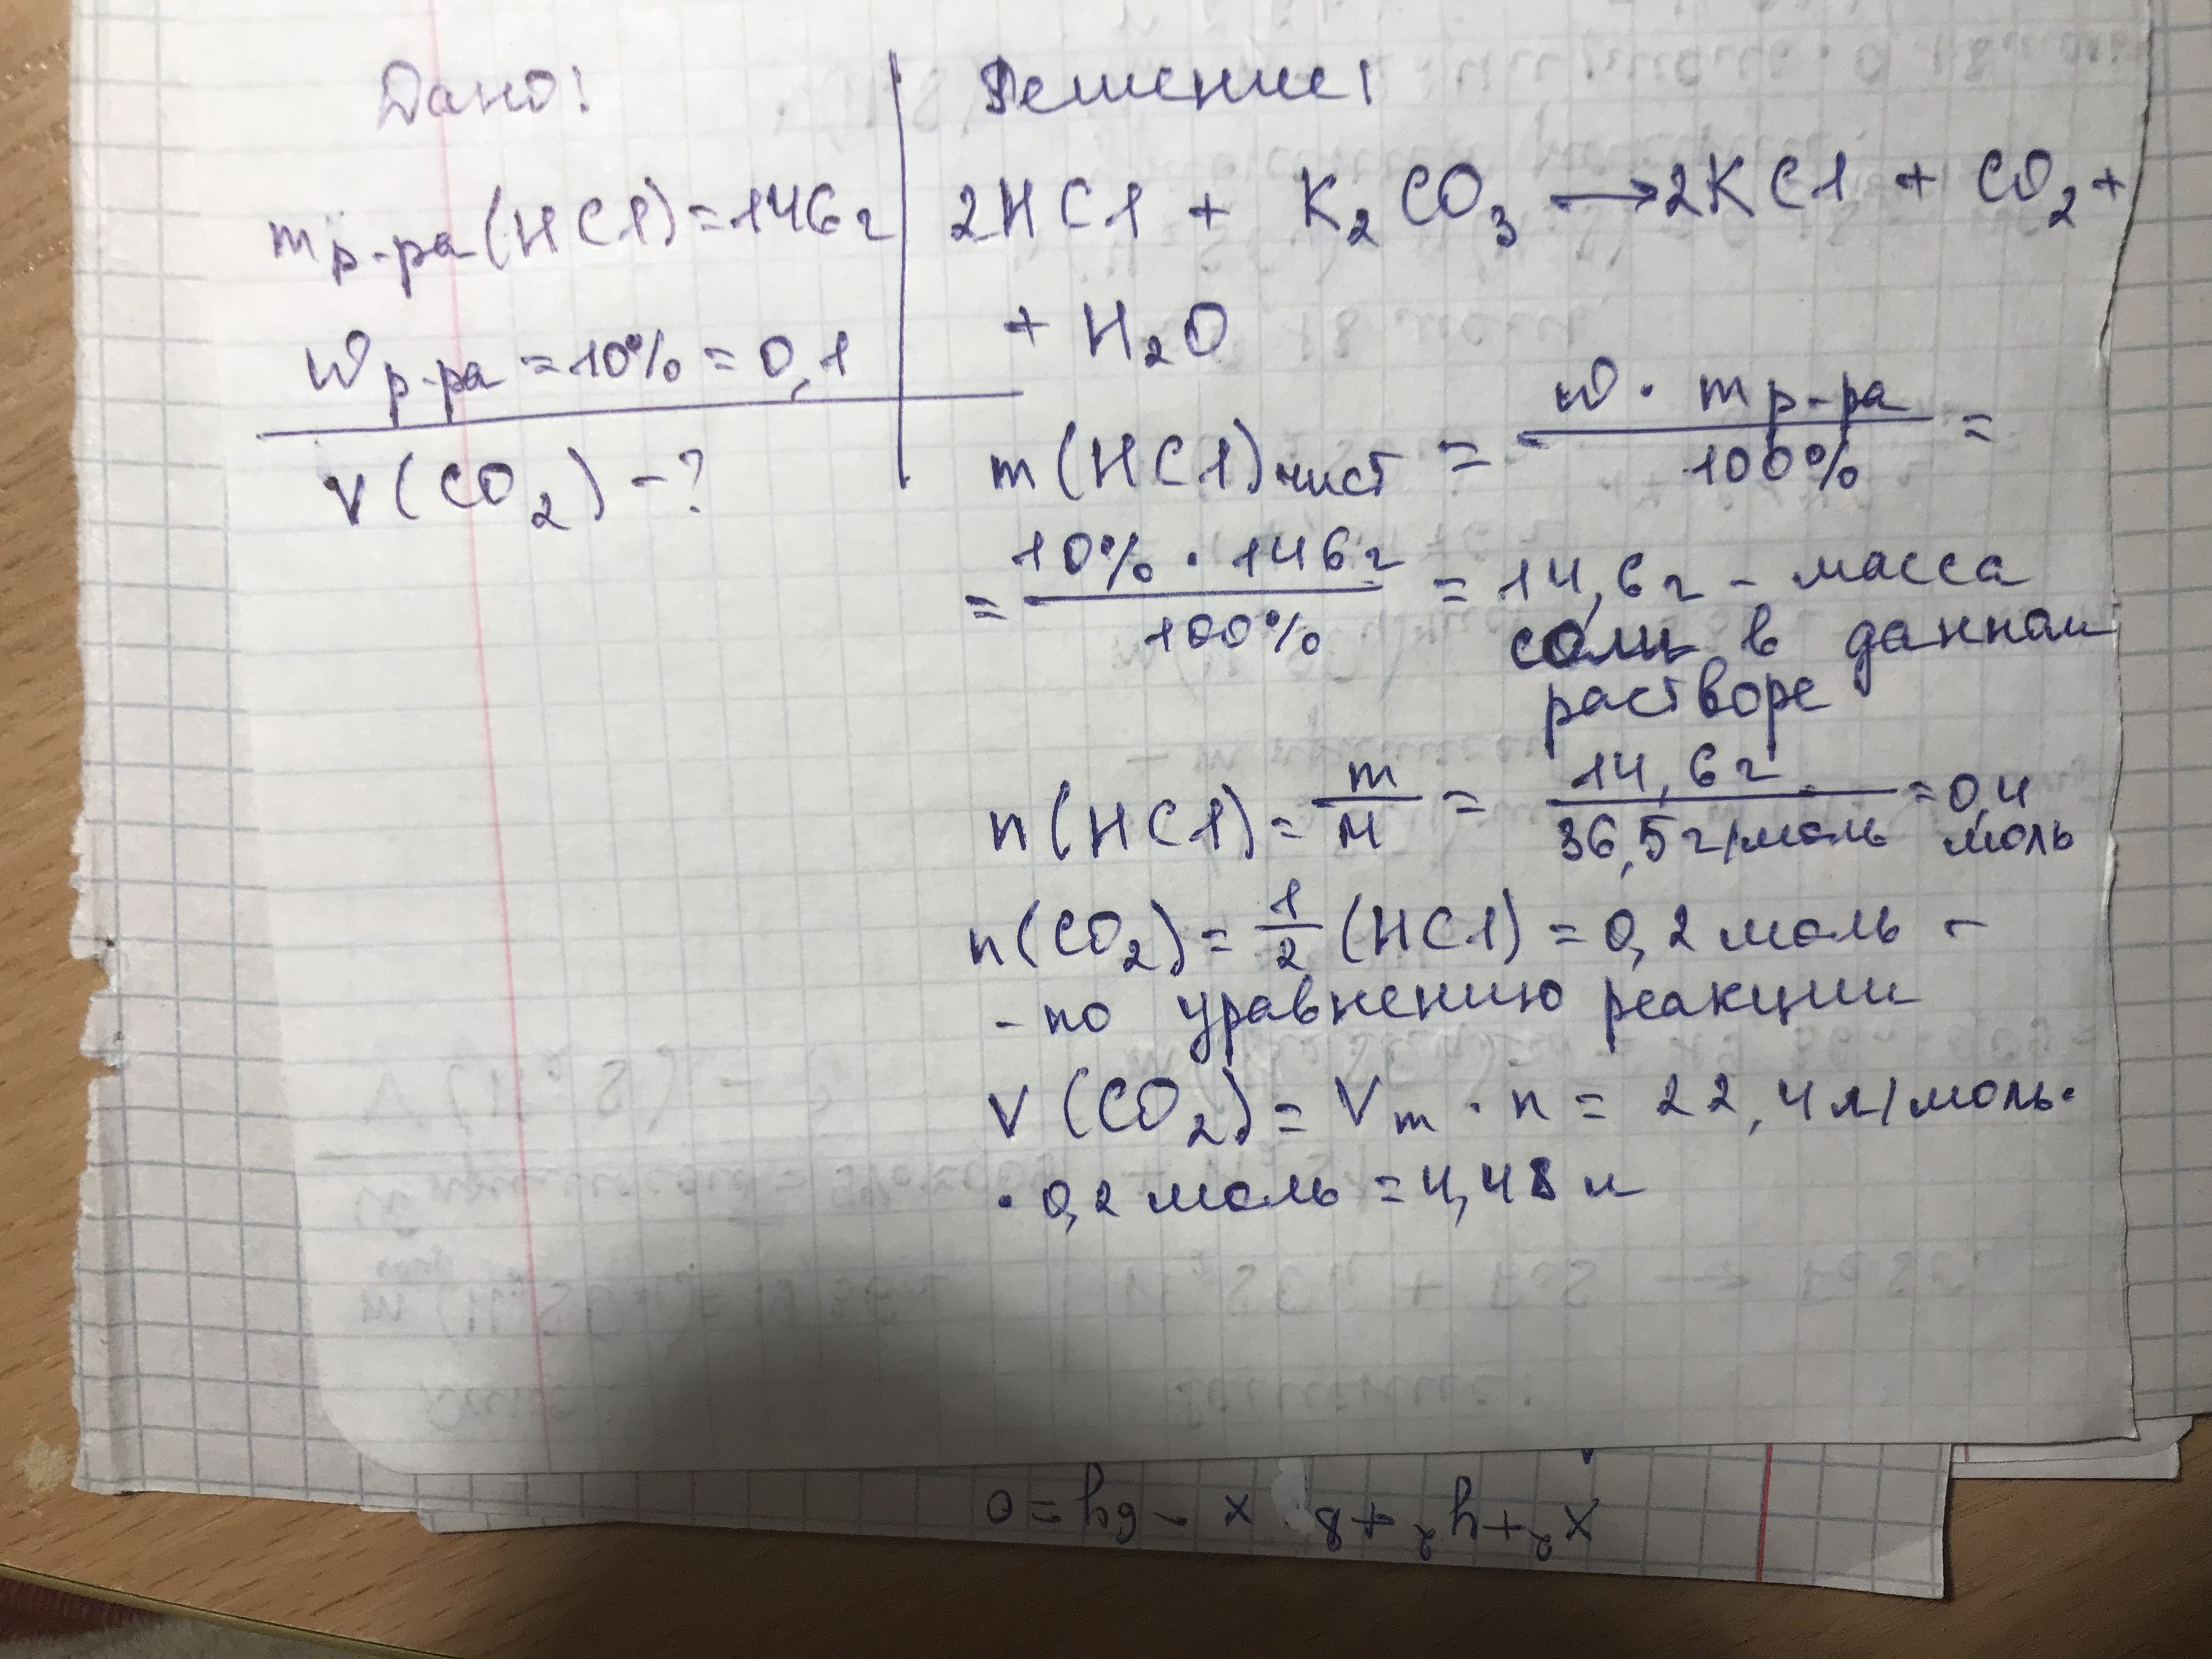 Дано:
m р-ра (HCl) = 146 г
W р-ра = 10% = 0,1
V (CO₂) - ?
Решение:
2HCl + K₂CO₃ ⟶ 2KCl + CO₂ +
+ H₂O
m (HCl) чист = (w · m р-ра) / 100% =
= (10% · 146 г) / 100% = 14,6 г - масса
соли в данном
растворе
n (HCl) = m / M = 14,6 г / 36,5 г/моль = 0,4 моль
n (CO₂) = 1/2 (HCl) = 0,2 моль -
- по уравнению реакции
V (CO₂) = Vm · n = 22,4 л/моль ·
· 0,2 моль = 4,48 л
x² + y² + 8x - 6y = 0